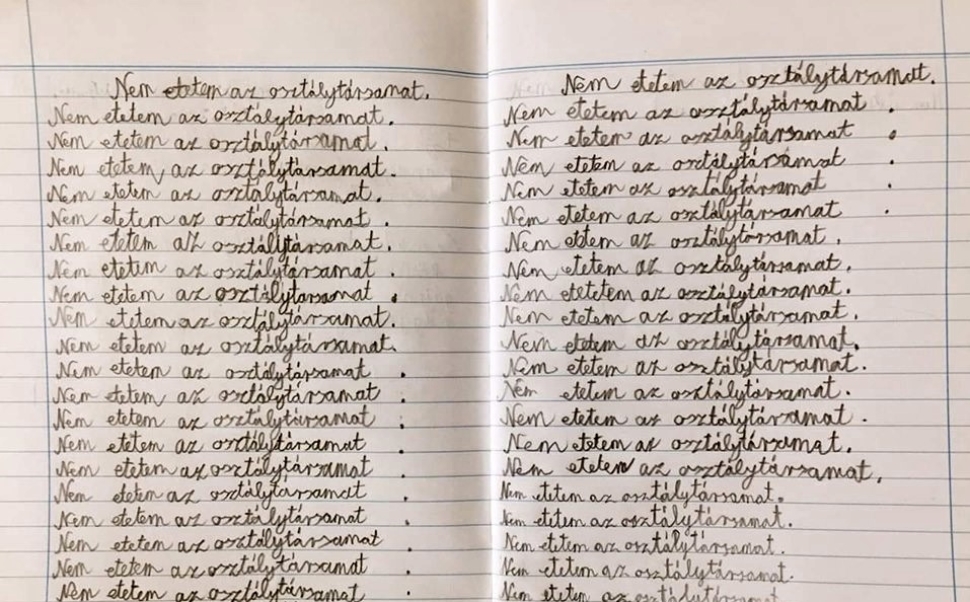 Nem etetem az osztálytársamat.
Nem etetem az osztálytársamat.
Nem etetem az osztálytársamat.
Nem etetem az osztálytársamat.
Nem etetem az osztálytársamat.
Nem etetem az osztálytársamat.
Nem etetem az osztálytársamat.
Nem etetem az osztálytársamat.
Nem etetem az osztálytársamat.
Nem etetem az osztálytársamat.
Nem etetem az osztálytársamat.
Nem etetem az osztálytársamat.
Nem etetem az osztálytársamat.
Nem etetem az osztálytársamat.
Nem etetem az osztálytársamat.
Nem etetem az osztálytársamat.
Nem etetem az osztálytársamat.
Nem etetem az osztálytársamat.
Nem etetem az osztálytársamat.
Nem etetem az osztálytársamat.
Nem etetem az osztálytársamat.
Nem etetem az osztálytársamat.
Nem etetem az osztálytársamat.
Nem etetem az osztálytársamat.
Nem etetem az osztálytársamat.
Nem etetem az osztálytársamat.
Nem etetem az osztálytársamat.
Nem etetem az osztálytársamat.
Nem etetem az osztálytársamat.
Nem etetetem az osztálytársamat.
Nem etetem az osztálytársamat.
Nem etetem az osztálytársamat.
Nem etetem az osztálytársamat.
Nem etetem az osztálytársamat.
Nem etetem az osztálytársamat.
Nem etetem az osztálytársamat.
Nem etetem az osztálytársamat.
Nem etetem az osztálytársamat.
Nem etetem az osztálytársamat.
Nem etetem az osztálytársamat.
Nem etetem az osztálytársamat.
Nem etetem az osztálytársamat